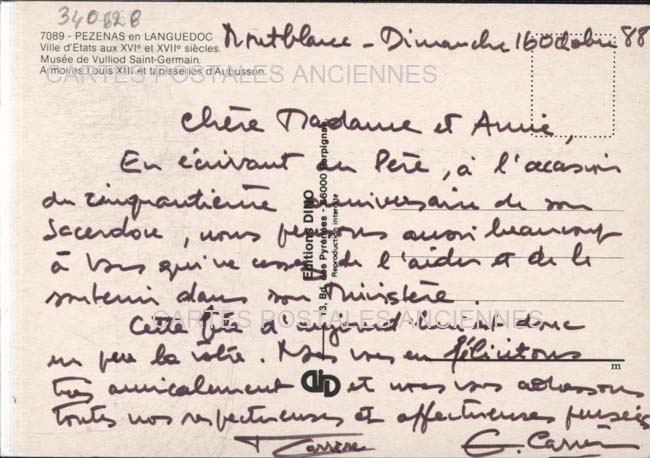 340828
7089 - PEZENAS en LANGUEDOC
Ville d'Etats aux XVIe et XVIIe siècles.
Musée de Vulliod Saint-Germain.
Armoiries Louis XIII et tapisseries d'Aubusson.
CARTES POSTALES ANCIENNES
Montblanc - Dimanche 16 Octobre 88
Chère Madame et Amie,
En écrivant au Père, à l'occasion
du cinquantième anniversaire de son
Sacerdoce, nous pensons aussi beaucoup
à Vous qui ne cessez de l'aider et de le
soutenir dans son Ministère.
Cette fête d'aujourd'hui est donc
un peu la vôtre. Nous vous en félicitons
très amicalement et nous vous adressons
toutes nos respectueuses et affectueuses pensées
Carrère
G. Carrère
Editions DINO
3, Bd. des Pyrénées - 66000 Perpignan
Reproduction interdite
CARTES POSTALES ANCIENNES
m